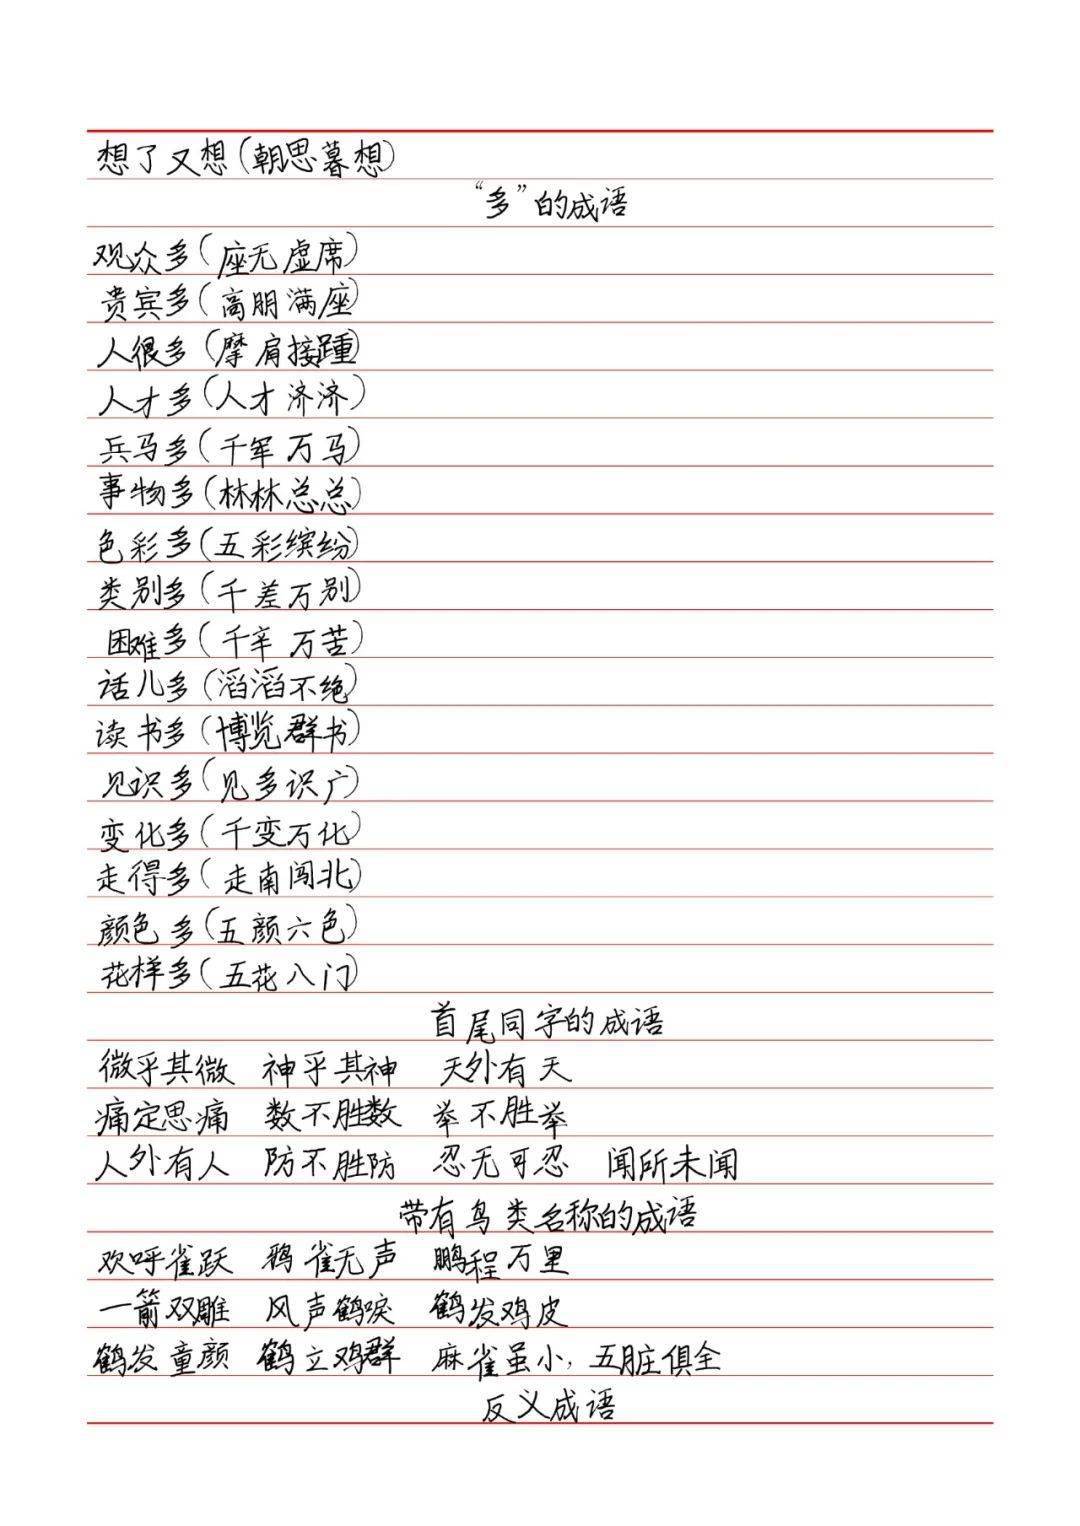 想了又想(朝思暮想)
“多”的成语
观众多(座无虚席)
贵宾多(高朋满座)
人很多(摩肩接踵)
人才多(人才济济)
兵马多(千军万马)
事物多(林林总总)
色彩多(五彩缤纷)
类别多(千差万别)
困难多(千辛万苦)
话儿多(滔滔不绝)
读书多(博览群书)
见识多(见多识广)
变化多(千变万化)
走得多(走南闯北)
颜色多(五颜六色)
花样多(五花八门)
首尾同字的成语
微乎其微 神乎其神 天外有天
痛定思痛 数不胜数 举不胜举
人外有人 防不胜防 忍无可忍 闻所未闻
带有鸟类名称的成语
欢呼雀跃 鸦雀无声 鹏程万里
一箭双雕 风声鹤唳 鹤发鸡皮
鹤发童颜 鹤立鸡群 麻雀虽小,五脏俱全
反义成语